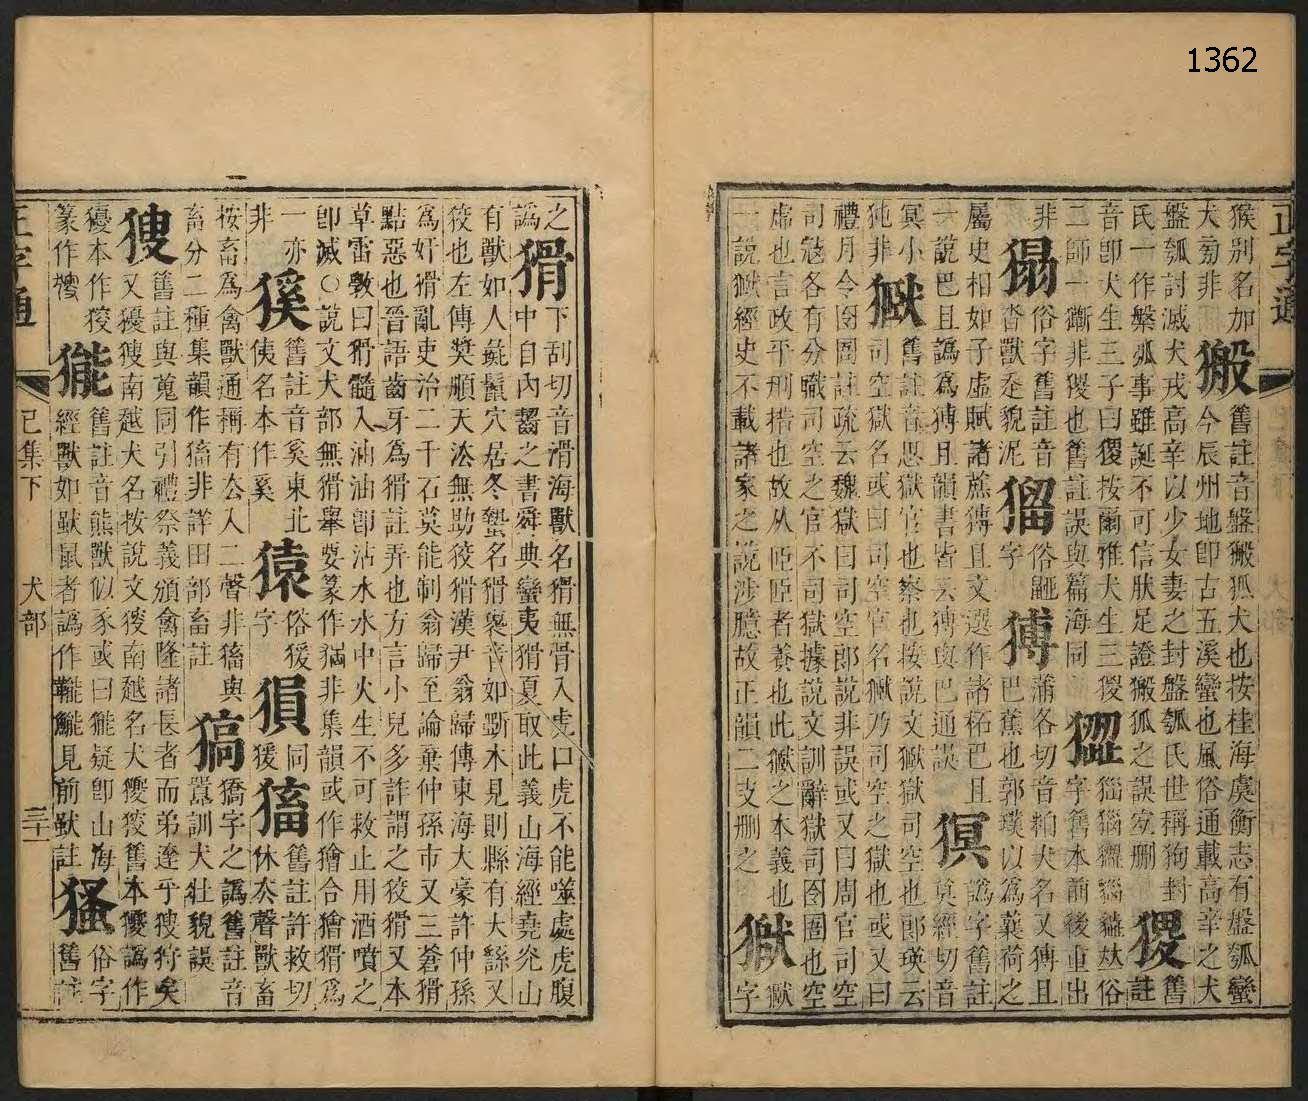 1362
正字通
猴別名加
犬旁非 㺜 舊註音盤㺜狐犬也按桂海虞衡志有盤瓠蠻
今辰州地卽古五溪蠻也風俗通載高辛之犬
盤瓠討滅犬戎高辛以少女妻之封盤瓠氏世稱狗封
氏一作槃弧事雖誕不可信肰足證㺜狐之誤宐刪 猣 舊註
音卽犬生三子曰猣按爾雅犬生三猣
二師一蹶非猣也舊註誤與篇海同
字舊本前後重出
非 俗字舊註音沓獸走貌泥 㽞 俗鼬字 猼 蒲各切音粕犬名又猼且
巴蕉也郭璞以爲蘘荷之
屬史相如子虛賦諸蔗猼且文選作諸柘巴且 譌字舊註
一說巴且譌爲猼且韻書皆云猼與巴通誤 猽 莫經切音
冥小豕非 㹜 舊註音思獄官也察也按說文㹜獄司空也郎瑛云
司空獄名或曰司空官名㹜乃司空之獄也或又曰
禮月令囹圄註疏云魏獄曰司空郎說非誤或又曰周官司空
司㓂各有分職司空之官不司獄據說文訓辭獄司囹圄也空
虛也言政平刑措也故从𦣞𦣞者養也此㹜之本義也 獄 㹜字
一說㹜經史不載諸家之說涉臆故正韻二支刪之
之譌 猾 下刮切音滑海獸名猾無骨入虎口虎不能噬處虎腹
中自內齧之書舜典蠻夷猾夏取此義山海經堯光山
有獸如人彘鬛穴居冬蟄名猾褢音如斲木見則縣有大繇又
狡也左傳奬順天法無助狡猾漢尹翁歸傳東海大豪許仲孫
爲奸猾亂吏治二千石莫能制翁歸至論棄仲孫市又三蒼猾
黠惡也晉語齒牙爲猾註弄也方言小兒多詐謂之狡猾又本
草雷斆曰猾髓入油油卽沾水水中火生不可救止用酒噴之
卽滅○說文犬部無猾舉要篆作㺉非集韻或作獪合獪猾爲
一亦非 豯 舊註音奚東北夷名本作奚 猿 俗猨字 㺅 同猨 㹌 舊註許救切
休去聲獸畜
按畜爲禽獸通稱有去入二聲非㹌與
畜分二種集韻作㹌非詳田部畜註 㺒 獢字之譌舊註音
囂訓犬壯貌誤
獀 舊註與蒐同引禮祭義頒禽隆諸長者而弟達乎獀狩矣
又獿獀南越犬名按說文獀南越名犬獿獀舊本獿譌作
獶本作獀
篆作 㹙 舊註音熊獸似豕或曰㹙疑卽山海
經獸如鼣鼠者譌作䪜䑏見前鼣註 搔 俗字
舊註
正字通
巳集下
犬部
三十一